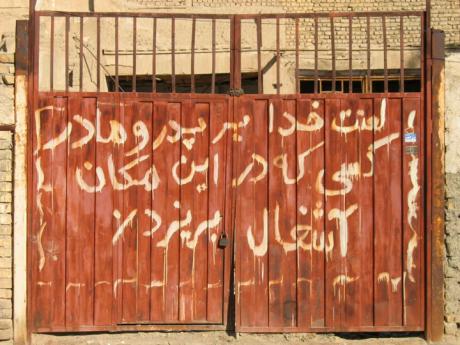 لعنت خدا بر پدر و مادر
کسی که در این مکان
آشغال بریزد